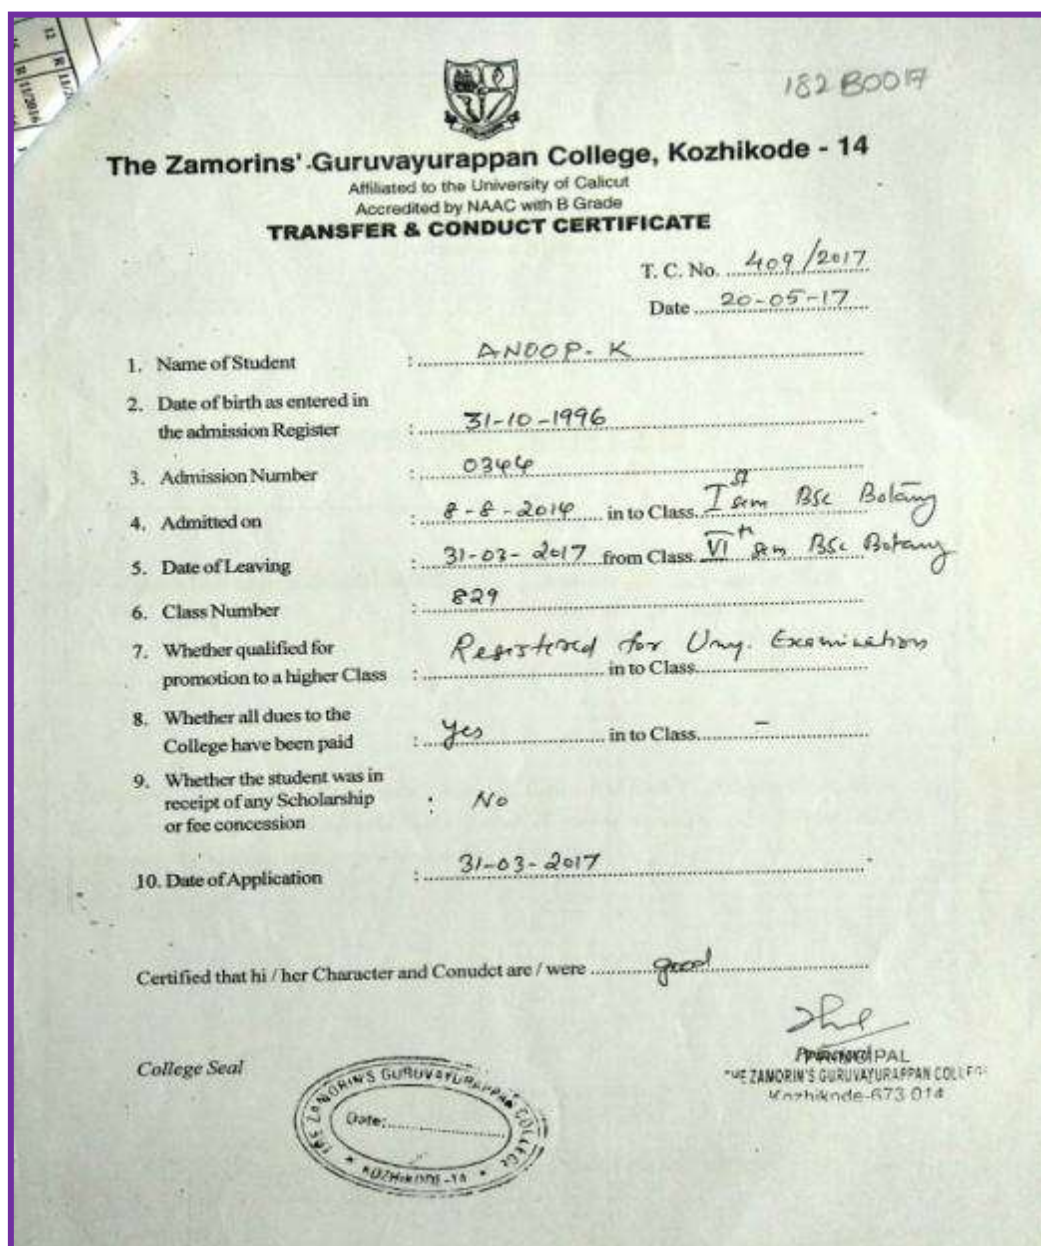 12
R 11/2016
182 B0017
The Zamorins' Guruvayurappan College, Kozhikode - 14
Affiliated to the University of Calicut
Accredited by NAAC with B Grade
TRANSFER & CONDUCT CERTIFICATE
T. C. No. 409/2017
Date 20-05-17
1. Name of Student : ANOOP. K
2. Date of birth as entered in
the admission Register : 31-10-1996
3. Admission Number : 0344
4. Admitted on : 8-8-2014 in to Class. Ist sem BSc Botany
5. Date of Leaving : 31-03-2017 from Class. VIth sem BSc Botany
6. Class Number : 829
7. Whether qualified for
Registered for Uny. Examination
promotion to a higher Class : in to Class
8. Whether all dues to the
College have been paid : Yes in to Class -
9. Whether the student was in
receipt of any Scholarship : No
or fee concession
10. Date of Application : 31-03-2017
Certified that hi / her Character and Conudct are / were good
College Seal
PRINCIPAL
THE ZAMORIN'S GURUVAYURAPPAN COLLEGE
Kozhikode-673 014
THE ZAMORIN'S GURUVAYURAPPAN COLLEGE
Date:
KOZHIKODE-14